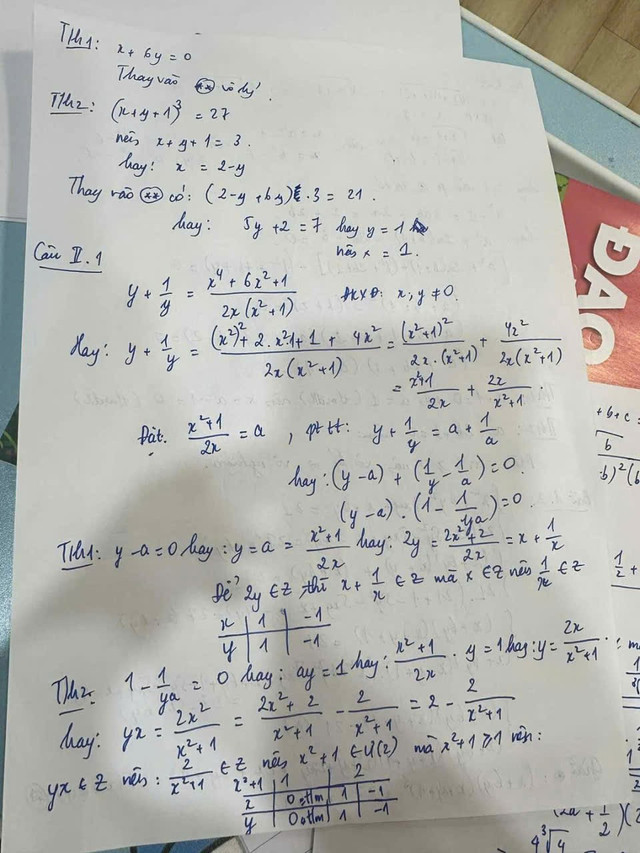 TH1: x + 6y = 0
Thay vào (**) vô lý.
TH2: (x+y+1)³ = 27
nên x + y + 1 = 3.
hay: x = 2-y
Thay vào (**) có: (2-y+6y).3 = 21.
hay: 5y + 2 = 7 hay y = 1
nên x = 1.
Câu II.1
y + 1/y = (x⁴ + 6x² + 1)/(2x(x²+1)) ĐKXĐ: x, y ≠ 0.
Hay: y + 1/y = ((x²)² + 2.x².1 + 1 + 4x²)/(2x(x²+1)) = (x²+1)²/(2x.(x²+1)) + 4x²/(2x(x²+1))
= (x²+1)/2x + 2x/(x²+1).
Đặt (x²+1)/2x = a, pttt: y + 1/y = a + 1/a
hay: (y-a) + (1/y - 1/a) = 0.
(y-a).(1 - 1/ya) = 0.
TH1: y-a=0 hay: y = a = (x²+1)/2x hay: 2y = (2x²+2)/2x = x + 1/x
Để 2y ∈ Z thì x + 1/x ∈ Z mà x ∈ Z nên 1/x ∈ Z
x | 1 | -1
y | 1 | -1
TH2: 1 - 1/ya = 0 hay: ay = 1 hay: (x²+1)/2x . y = 1 hay: y = 2x/(x²+1).
hay: yx = 2x²/(x²+1) = (2x²+2)/(x²+1) - 2/(x²+1) = 2 - 2/(x²+1)
yx ∈ Z nên: 2/(x²+1) ∈ Z nên x²+1 ∈ Ư(2) mà x²+1 ≥ 1 nên:
x²+1 | 1 | 2
x | 0 ktm | 1 | -1
y | 0 ktm | 1 | -1
ĐAO